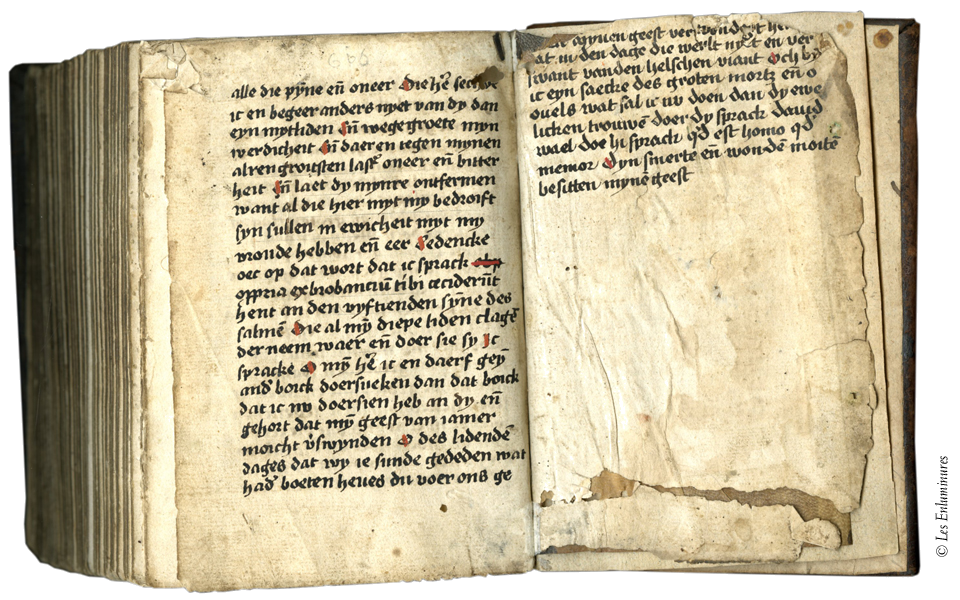 alle die pyne en̄ oneer die h̄e sechde
ic en begeer anders nyet van dy dan
eyn mytliden En̄ wege groete myn
werdicheit En̄ daer en tegen mynen
alren groitsten last oneer en̄ bitter
heit En̄ laet dy mynre ontfermen
want al die hier myt my bedroift
syn sullen in ewicheit myt my
vroude hebben en̄ eer Gedencke
oec op dat wort dat ic sprack
oppria exbrobanciū tibi ceciderūt
hent an den vyftienden syne des
salmē die al my diepe liden clagē
der neem waer en̄ doer sie sy Ic
spracke O my h̄e ic en daerf gey
and boick doersueken dan dat boick
dat ic nv doersien heb an dy en̄
gehort dat my geest van iamer
moicht v̄swynden O des lidendē
dages dat wy ie sunde gededen wat
had boeten heues du voer ons ge
mynen geest
dat in den dage die werlt nyet en ver
want vanden helschen viant Och by
ic eyn saecke des groten mortz en̄ o
ouels wat sal ic nv doen dan dy ewe
licken trouwē doer dy sprack dauid
wael doe hi sprack qd est homo qd
memor dyn smerte en̄ wondē moitē
besitten mynē geest
© Les Enluminures